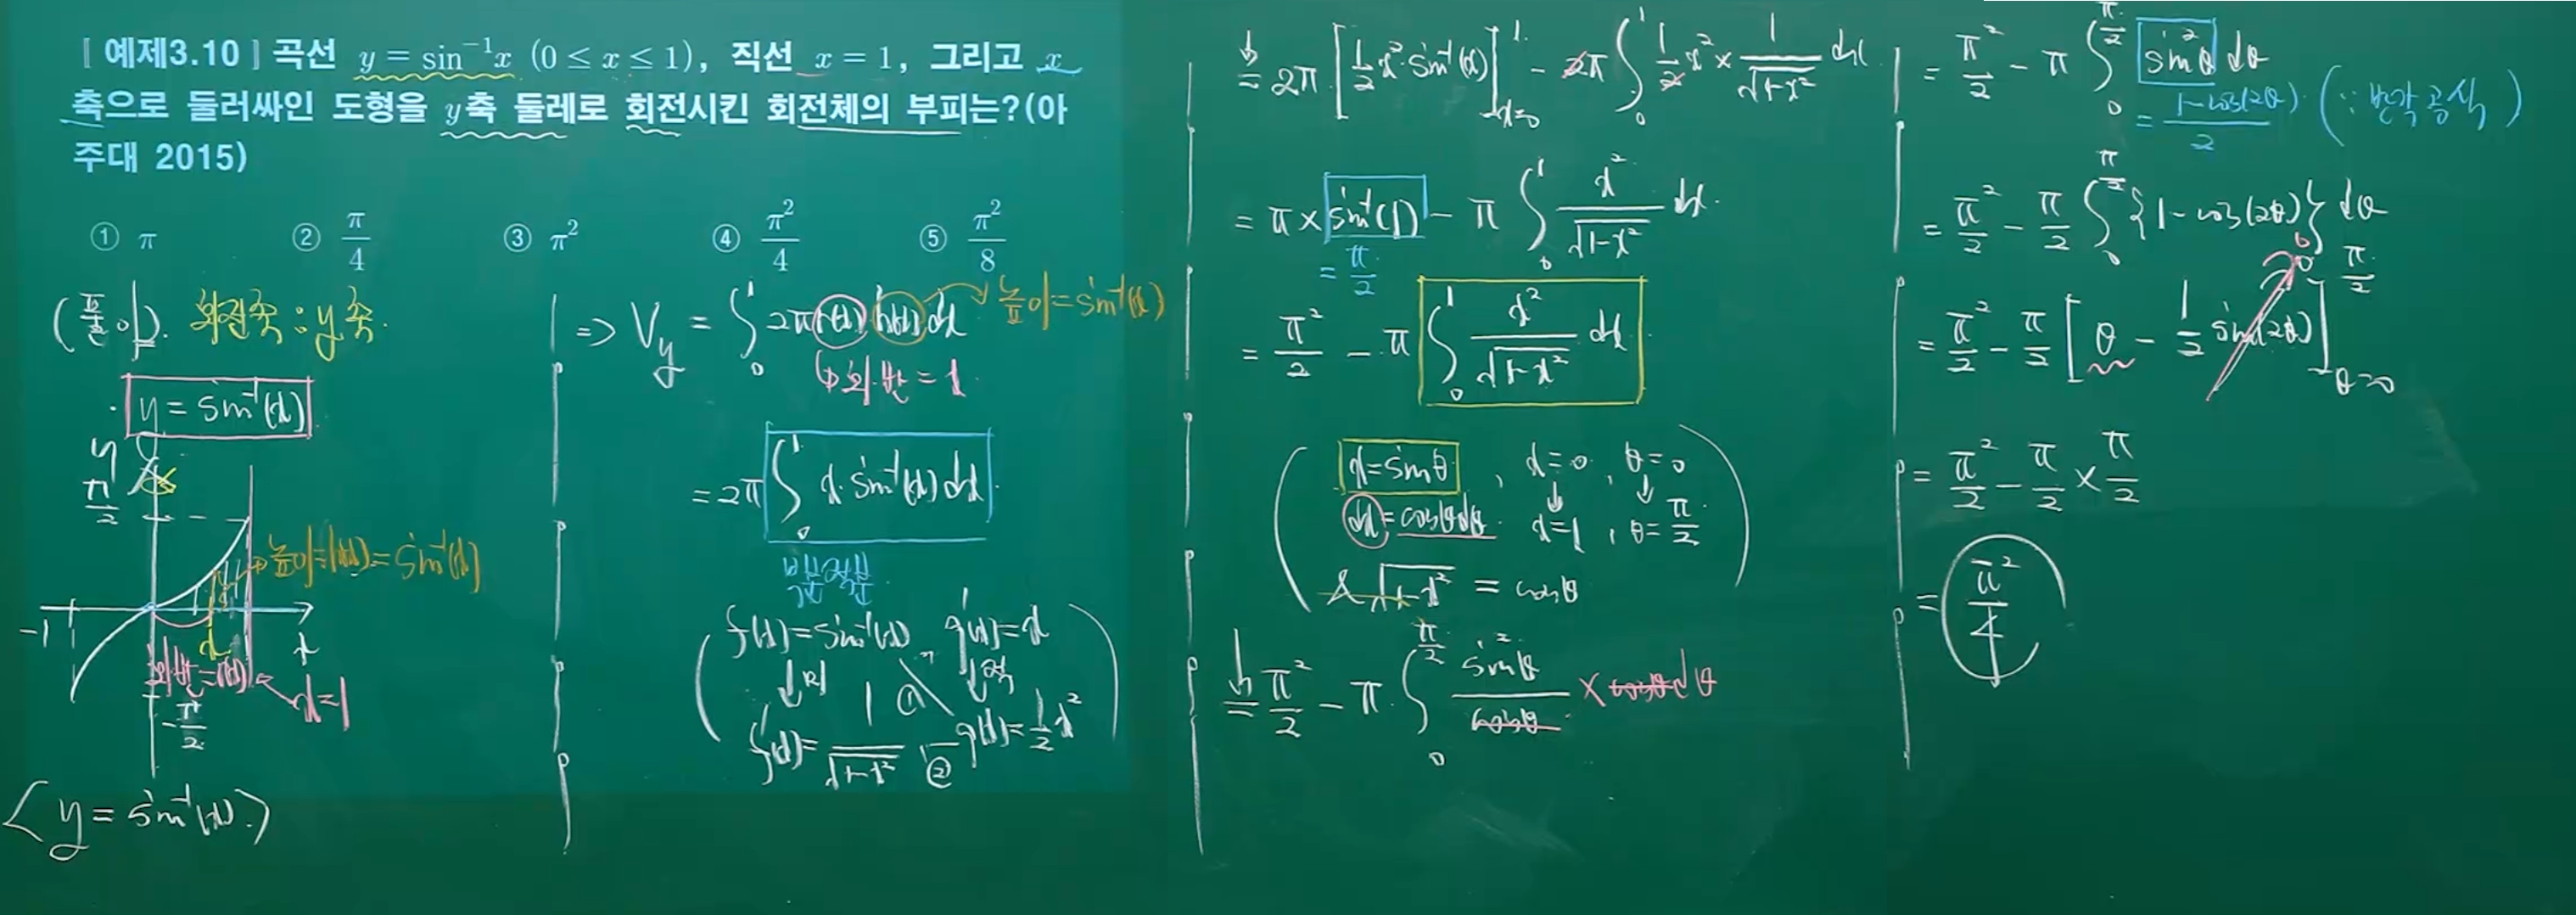 [예제3.10] 곡선 y = sin⁻¹x (0 ≤ x ≤ 1), 직선 x = 1, 그리고 x
축으로 둘러싸인 도형을 y축 둘레로 회전시킨 회전체의 부피는?(아
주대 2015)
① π ② π/4 ③ π² ④ π²/4 ⑤ π²/8
(풀이). 회전축 : y축.
· y = sin⁻¹(x)
y
π/2
높이=h(x)=sin⁻¹(x)
-1
x
x
회반=r(x)
x=1
-π/2
<y = sin⁻¹(x).>
⇒ V_y = ∫₀¹ 2π r(x) h(x) dx
높이=sin⁻¹(x)
회반 = x
= 2π ∫₀¹ x·sin⁻¹(x) dx
부분적분
f(x)=sin⁻¹(x) g'(x)=x
↓미 ① ↓적
f'(x)= 1/√(1-x²) ② g(x)=1/2 x²
= 2π [1/2 x²·sin⁻¹(x)]ₓ₌₀¹ - 2π ∫₀¹ 1/2 x² × 1/√(1-x²) dx
= π × sin⁻¹(1) - π ∫₀¹ x²/√(1-x²) dx
= π/2
= π²/2 - π ∫₀¹ x²/√(1-x²) dx
x=sinθ , x=0 , θ=0
dx=cosθdθ x=1 , θ=π/2
& √(1-x²) = cosθ
= π²/2 - π ∫₀^(π/2) sin²θ/cosθ × cosθdθ
= π²/2 - π ∫₀^(π/2) sin²θ dθ
= (1-cos(2θ))/2 (∵ 반각공식)
= π²/2 - π/2 ∫₀^(π/2) {1-cos(2θ)} dθ
0
= π²/2 - π/2 [θ - 1/2 sin(2θ)]_(θ=0)^(π/2)
= π²/2 - π/2 × π/2
= π²/4